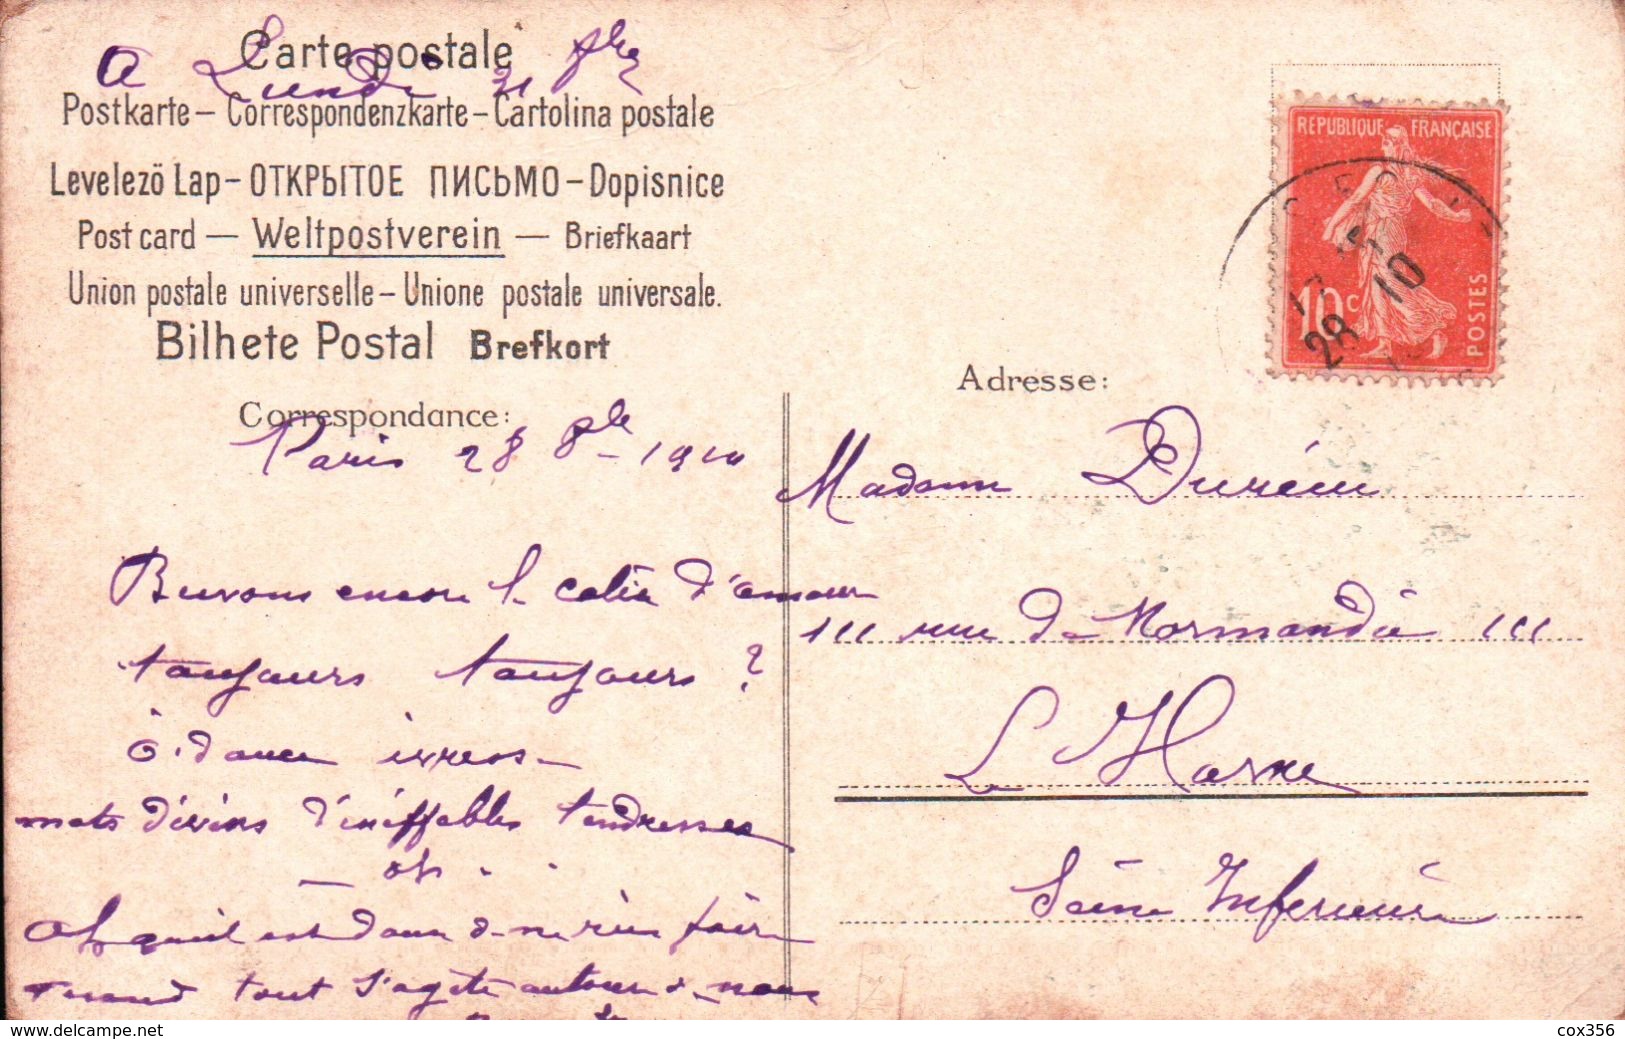 Carte postale
A Lundi 31 8bre
Postkarte – Correspondenzkarte – Cartolina postale
Levelezö Lap – ОТКРЫТОЕ ПИСЬМО – Dopisnice
Post card — Weltpostverein — Briefkaart
Union postale universelle – Unione postale universale.
Bilhete Postal Brefkort
REPUBLIQUE FRANÇAISE
10c POSTES
28 10
Correspondance:
Paris 28 8bre 1910
Buvons encore le calice d'amour
toujours toujours ?
ô. douce ivresse
mots divins d'ineffables tendresses
— oh . .
Oh qu'il est doux de ne rien faire
quand tout s'agite autour de nous
Adresse:
Madame Durécu
111 rue de Normandie 111
Le Havre
Seine Inférieure
delcampe.net
cox356